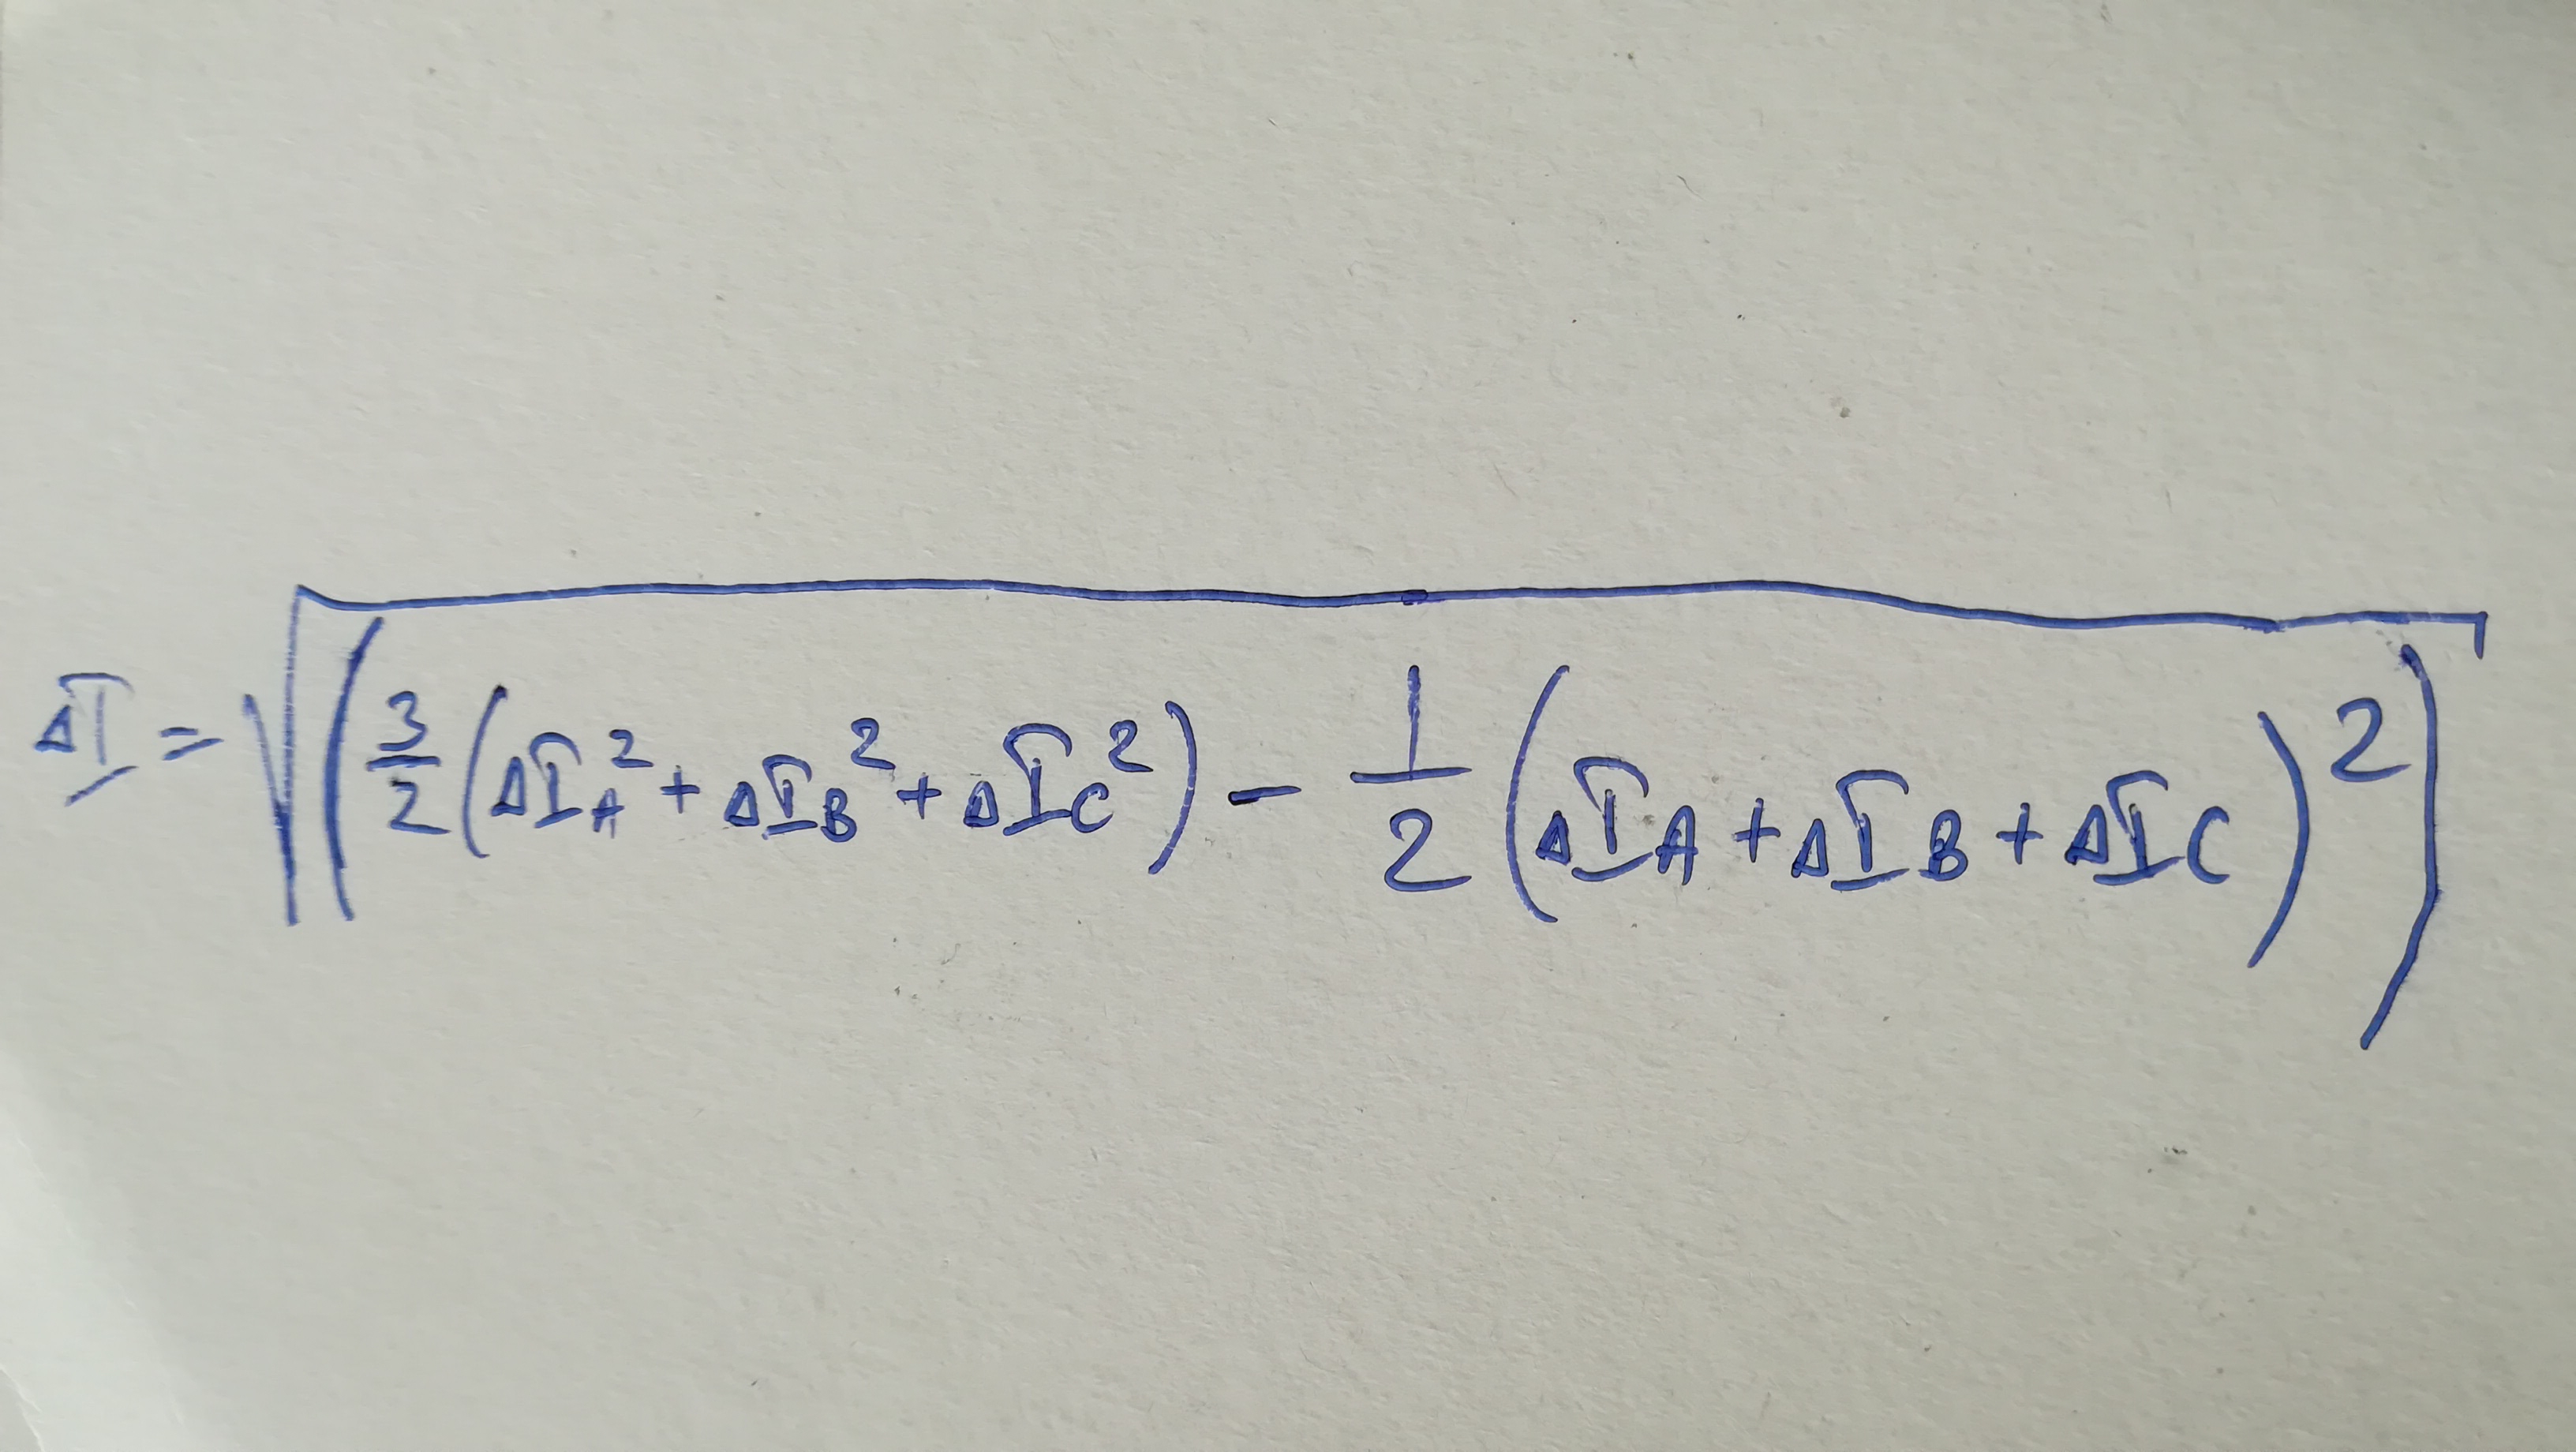 ΔI = √((3/2 (ΔI_A² + ΔI_B² + ΔI_C²) − 1/2 (ΔI_A + ΔI_B + ΔI_C)²)